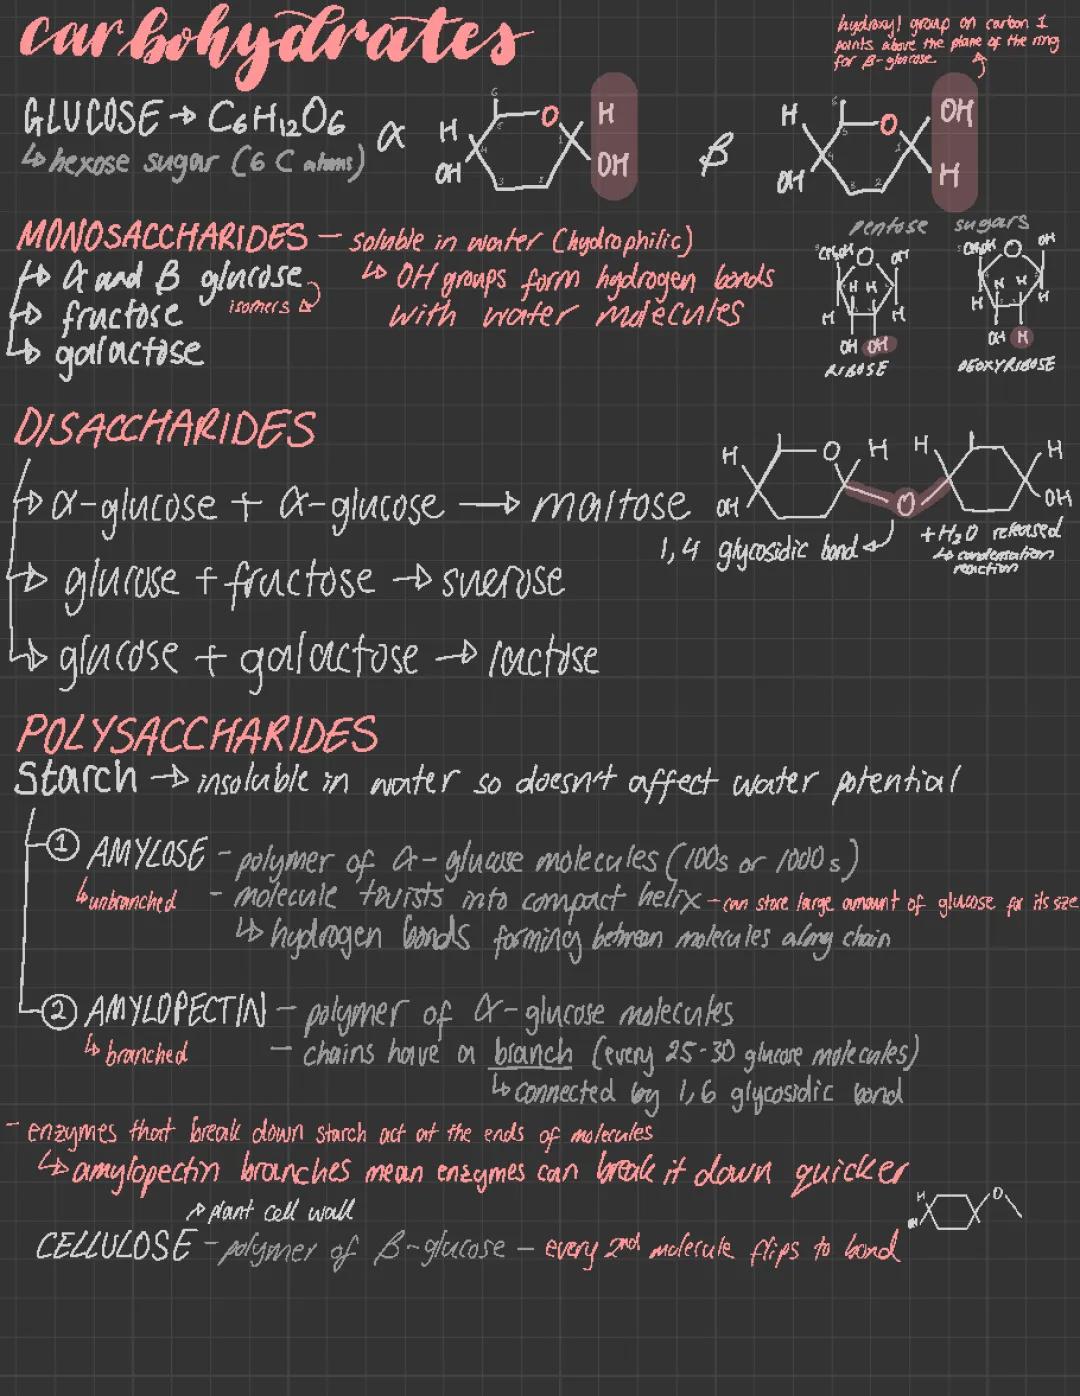 carbohydrates
hydroxyl group on carbon 1
points above the plane of the ring
for β-glucose
GLUCOSE → C6H12O6
↳ hexose sugar (6 C atoms)
α
6
O
H
H
5
4
1
OH
OH
3 2
β
6
O
H
OH
5
4
1
OH
H
3 2
MONOSACCHARIDES – soluble in water (hydrophilic)
↳ α and β glucose
isomers
↳ fructose
↳ galactose
↳ OH groups form hydrogen bonds
with water molecules
pentose sugars
O OH
H H
H H
OH OH
RIBOSE
O OH
H H
H H
OH H
DEOXYRIBOSE
DISACCHARIDES
↳ α-glucose + α-glucose → maltose
H O H H H
OH O OH
1,4 glycosidic bond
+ H2O released
↳ condensation
reaction
↳ glucose + fructose → sucrose
↳ glucose + galactose → lactose
POLYSACCHARIDES
Starch → insoluble in water so doesn't affect water potential
① AMYLOSE – polymer of α-glucose molecules (100s or 1000s)
↳ unbranched – molecule twists into compact helix – can store large amount of glucose for its size
↳ hydrogen bonds forming between molecules along chain
② AMYLOPECTIN – polymer of α-glucose molecules
↳ branched – chains have a branch (every 25-30 glucose molecules)
↳ connected by 1,6 glycosidic bond
– enzymes that break down starch act at the ends of molecules
↳ amylopectin branches mean enzymes can break it down quicker
→ plant cell wall
CELLULOSE – polymer of β-glucose – every 2nd molecule flips to bond
H O